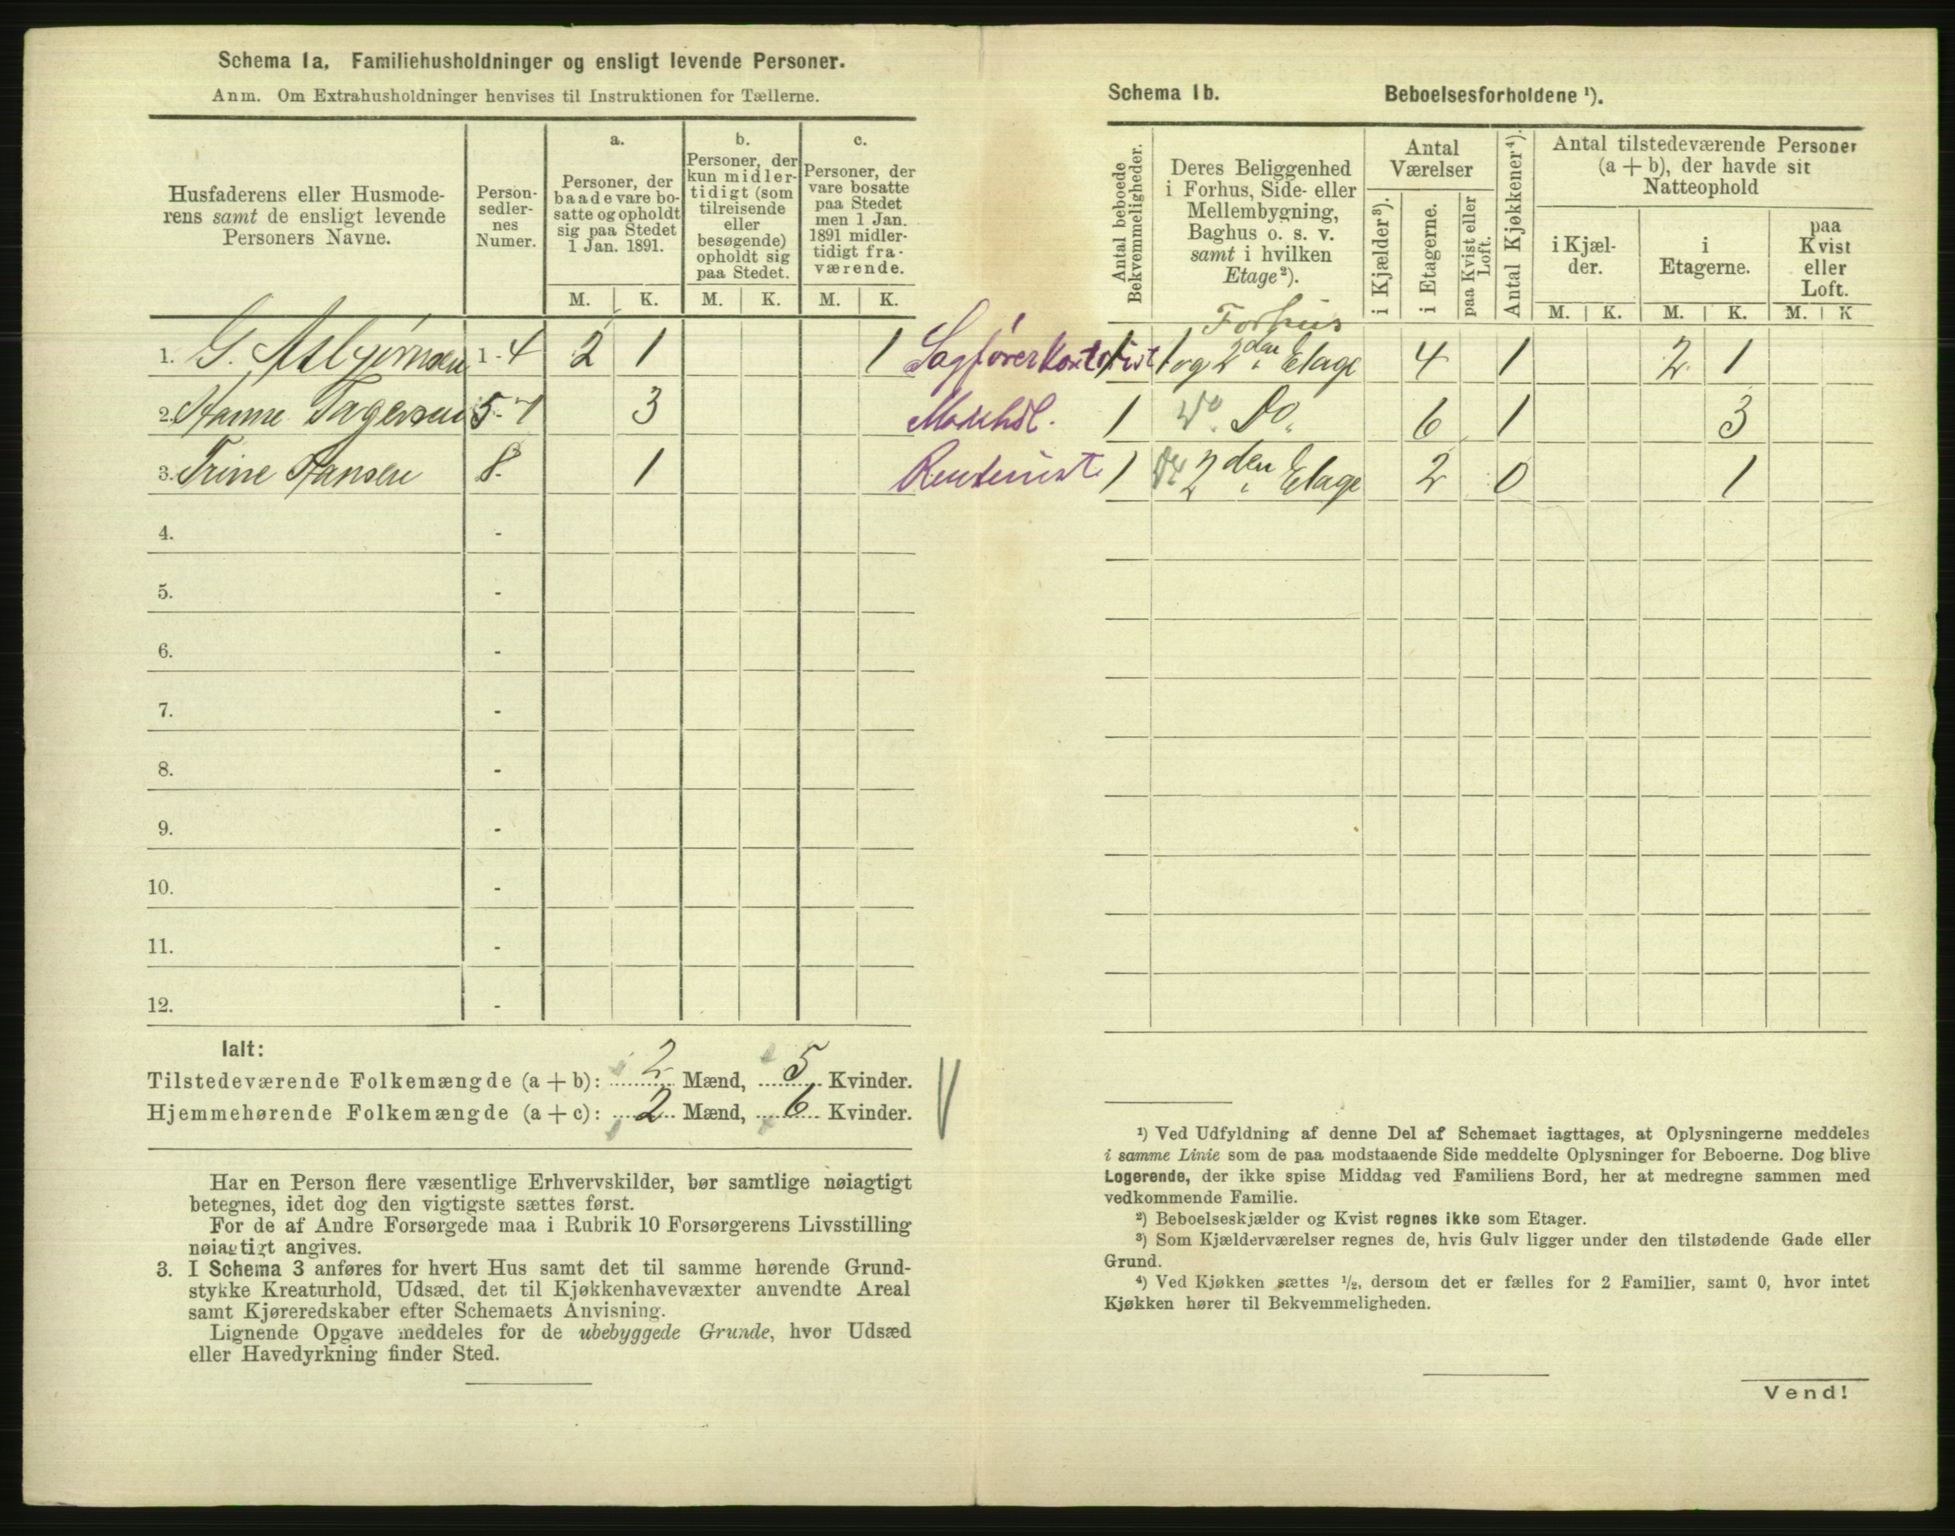 Schema 1a. Familiehusholdninger og ensligt levende Personer.
Anm. Om Extrahusholdninger henvises til Instruktionen for Tællerne.
Husfaderens eller Husmode-
rens samt de ensligt levende
Personers Navne.
Person-
sedler-
nes
Numer.
a.
Personer, der
baade vare bo-
satte og opholdt
sig paa Stedet
1 Jan. 1891.
b.
Personer, der
kun midler-
tidigt (som
tilreisende
eller
besøgende)
opholdt sig
paa Stedet.
c.
Personer, der
vare bosatte
paa Stedet
men 1 Jan.
1891 midler-
tidigt fra-
værende.
M. K. M. K. M. K.
1. G. Asbjørnsen 1 - 4 2 1 1
2. Hanne 5 - 7 3
3. Trine Hansen 8 - 1
4. -
5. -
6. -
7. -
8. -
9. -
10. -
11. -
12. -
Ialt:
Tilstedeværende Folkemængde (a + b): 2 Mænd, 5 Kvinder.
Hjemmehørende Folkemængde (a + c): 2 Mænd, 6 Kvinder.
Har en Person flere væsentlige Erhvervskilder, bør samtlige nøiagtigt
betegnes, idet dog den vigtigste sættes først.
For de af Andre Forsørgede maa i Rubrik 10 Forsørgerens Livsstilling
nøiagtigt angives.
3. I Schema 3 anføres for hvert Hus samt det til samme hørende Grund-
stykke Kreaturhold, Udsæd, det til Kjøkkenhavevæxter anvendte Areal
samt Kjøreredskaber efter Schemaets Anvisning.
Lignende Opgave meddeles for de ubebyggede Grunde, hvor Udsæd
eller Havedyrkning finder Sted.
Schema 1b. Beboelsesforholdene ¹).
Antal beboede
Bekvemmeligheder.
Deres Beliggenhed
i Forhus, Side- eller
Mellembygning,
Baghus o. s. v.
samt i hvilken
Etage ²).
Antal
Værelser
i Kjælder ³).
i Etagerne.
paa Kvist eller
Loft.
Antal Kjøkkener ⁴).
Antal tilstedeværende Personer
(a + b), der havde sit
Natteophold
i Kjæl-
der.
i
Etagerne.
paa
Kvist
eller
Loft.
M. K. M. K. M. K
Forhus
Sagførerkontorist 1 1 og 2den Etage 4 1 2 1
1 Do. Do. 6 1 3
Rentenist 1 2den Etage 2 0 1
¹) Ved Udfyldning af denne Del af Schemaet iagttages, at Oplysningerne meddeles
i samme Linie som de paa modstaaende Side meddelte Oplysninger for Beboerne. Dog blive
Logerende, der ikke spise Middag ved Familiens Bord, her at medregne sammen med
vedkommende Familie.
²) Beboelseskjælder og Kvist regnes ikke som Etager.
³) Som Kjælderværelser regnes de, hvis Gulv ligger under den tilstødende Gade eller
Grund.
⁴) Ved Kjøkken sættes ½, dersom det er fælles for 2 Familier, samt 0, hvor intet
Kjøkken hører til Bekvemmeligheden.
Vend!